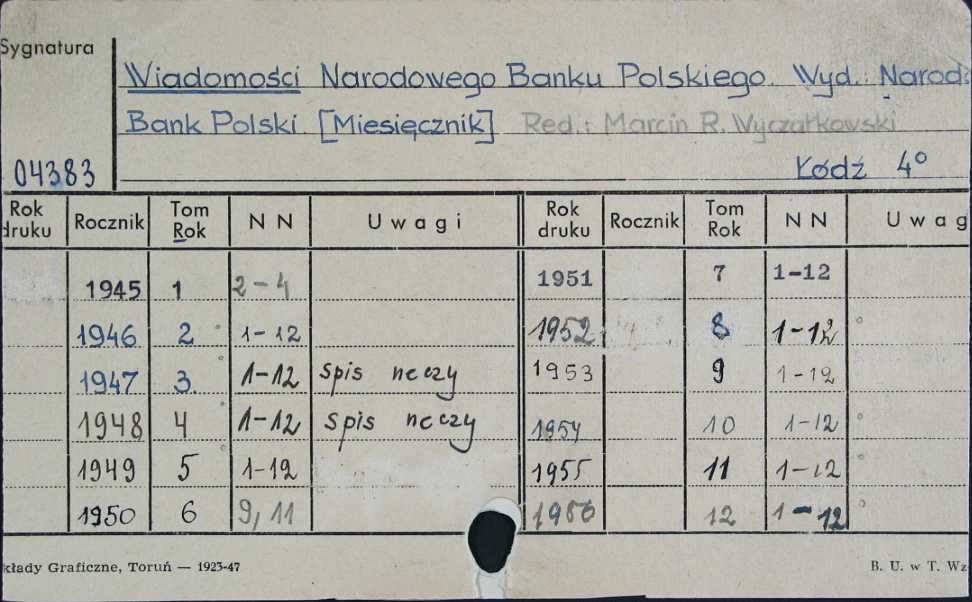 Sygnatura
Wiadomości Narodowego Banku Polskiego. Wyd.: Narod.
Bank Polski. [Miesięcznik] Red.: Marcin R. Wyczałkowski
04383 Łódź 4°
Rok druku Rocznik Tom Rok N N Uwagi Rok druku Rocznik Tom Rok N N Uwag
1945 1 2-4 1951 7 1-12
1946 2 1-12 1952 8 1-12
1947 3. 1-12 spis rzeczy 1953 9 1-12
1948 4 1-12 spis rzeczy 1954 10 1-12
1949 5 1-12 1955 11 1-12
1950 6 9, 11 1956 12 1-12
kłady Graficzne, Toruń — 1923-47 B. U. w T. Wz